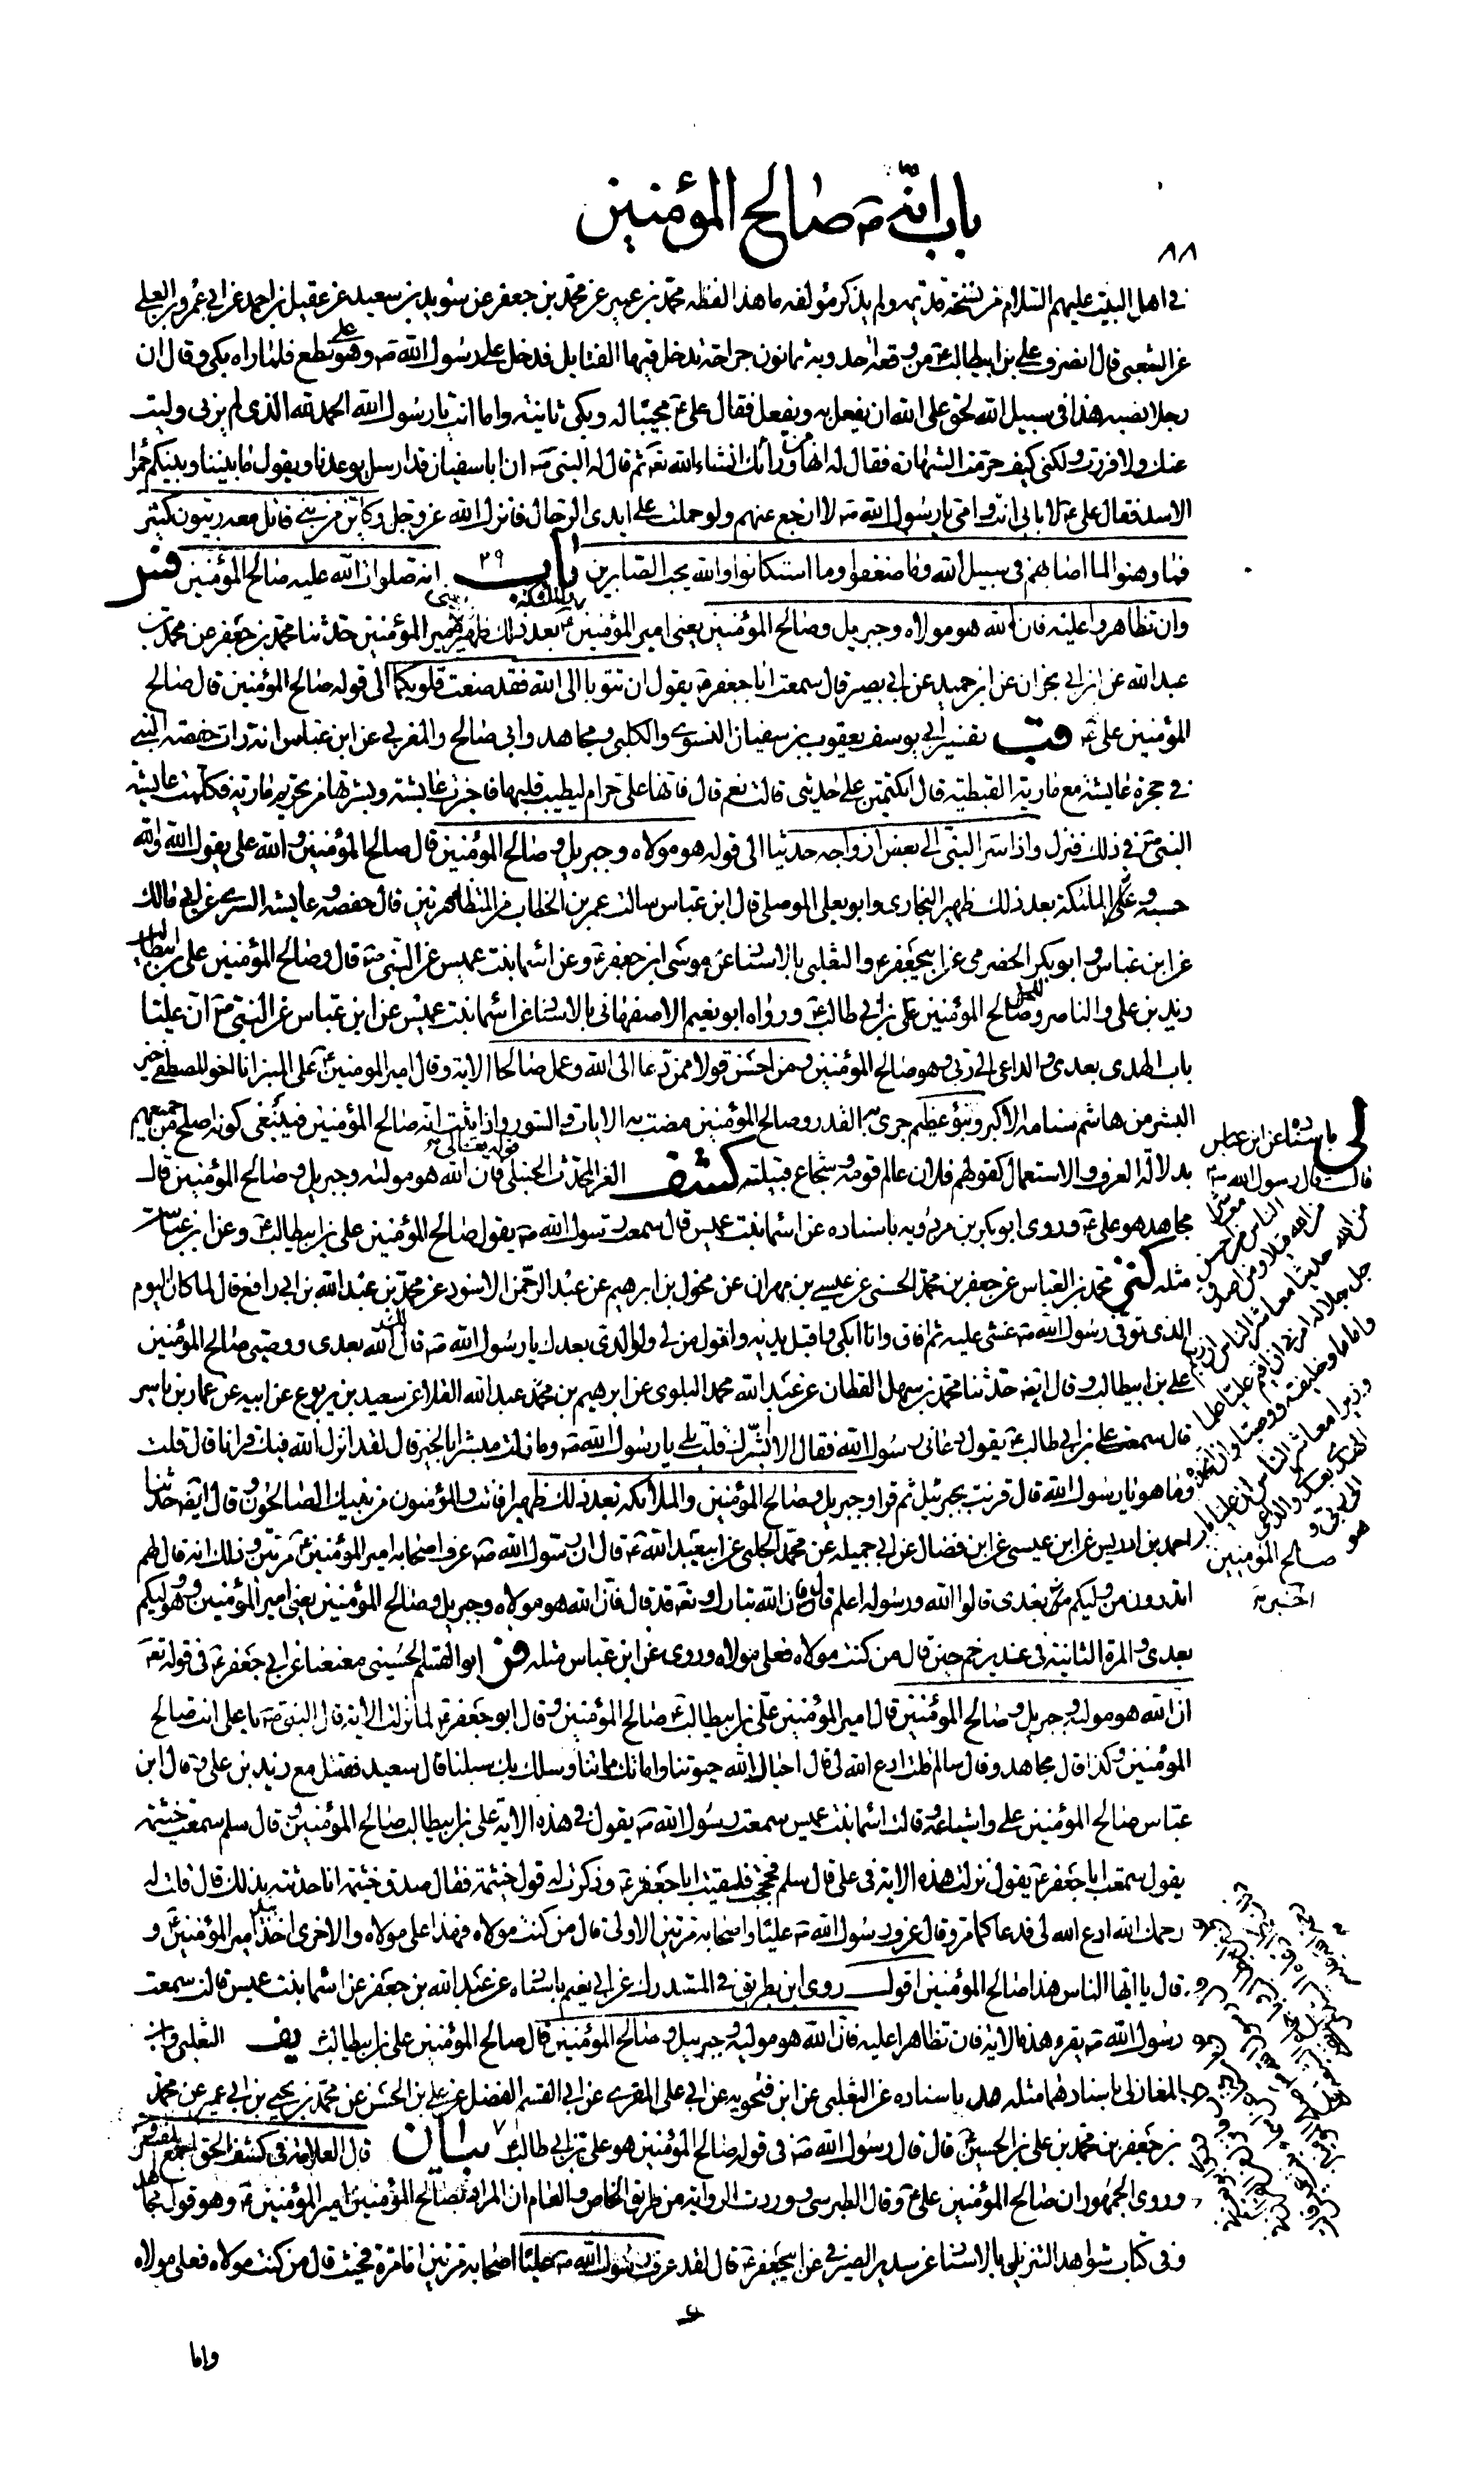 باب انّه ص صالح المؤمنين
٨٨
في اهل البيت عليهم السلام من نسخة قديمه ولم يذكر مؤلفه ما هذا لفظه محمد بن عمير عن محمد بن جعفر عن سويد بن سعيد عن عقيل بن احمد عن ابي عمرو بن العلى
عن الشعبي قال انصرف علي بن ابيطالب ع من وقعة احد وبه ثمانون جراحة يدخل فيها الفتايل فدخل على رسول الله ص وهو على نطع فلما راه بكى وقال ان
رجلا يصيبه هذا في سبيل الله لحق على الله ان يفعل به ويفعل فقال علي ع مجيبا له وبكى ثانية واما انت يا رسول الله الحمد لله الذي لم يرني وليت
عنك ولا فررت ولكني كيف حرمت الشهادة فقال له انها من ورائك انشاء الله تعه ثم قال له النبي ص ان ابا سفيان قد ارسل يوعدنا ويقول ما بيننا وبينكم حمرا
الاسد فقال علي ع لا بابي انت وامي يا رسول الله ص لا ارجع عنهم ولو حملت على ايدي الرجال فانزل الله عز وجل وكاين من نبي قاتل معه ربيون كثير
فما وهنوا لما اصابهم في سبيل الله وما ضعفوا وما استكانوا والله يحب الصابرين باب ٢٩ انه صلوات الله عليه صالح المؤمنين فس
وان تظاهرا عليه فان الله هو مولاه وجبريل وصالح المؤمنين يعني امير المؤمنين ع والملئكة بعد ذلك ظهير يعني لامير المؤمنين حدثنا محمد بن جعفر عن محمد بن
عبد الله عن ابن ابي نجران عن ابن حميد عن ابي بصير قال سمعت ابا جعفر ع يقول ان تتوبا الى الله فقد صغت قلوبكما الى قوله صالح المؤمنين قال صالح
المؤمنين علي ع قب تفسير ابي يوسف يعقوب بن سفيان النسوي والكلبي ومجاهد وابي صالح والمغربي عن ابن عباس انه رات حفصه النبي
في حجرة عايشة مع مارية القبطية قال اتكتمين علي حديثي قالت نعم قال فانها علي حرام ليطيب قلبها فاخبرت عايشة وبشرتها من تحريم مارية فكلمت عايشة
النبي ص في ذلك فنزل واذ اسر النبي الى بعض ازواجه حديثا الى قوله هو مولاه وجبريل وصالح المؤمنين قال صالح المؤمنين والله علي يقول الله والله
حسبه وعلي والملئكة بعد ذلك ظهير البخاري وابو يعلى الموصلي قال ابن عباس سالت عمر بن الخطاب من المتظاهرتين قال حفصه وعايشه السدي عن ابي مالك
عن ابن عباس وابو بكر الحضرمي عن ابيجعفر ع والثعلبي بالاسناد عن موسى ابن جعفر ع وعن اسماء بنت عميس عن النبي ص قال وصالح المؤمنين علي بن ابيطالب
زيد بن علي والناصر وصالح المؤمنين علي بن ابي طالب ع ورواه ابو نعيم الاصفهاني بالاسناد عن اسماء بنت عميس عن ابن عباس عن النبي ص ان عليا
باب الهدى بعدي والداعي الى ربي وهو صالح المؤمنين ومن احسن قولا ممن دعا الى الله وعمل صالحا الاية وقال امير المومنين ع على المنبر انا اخو المصطفى خير
البشر من هاشم سنامه الاكبر ونبؤ عظيم جرى به القدر وصالح المؤمنين مضت به الايات والسور واذا ثبت انه صالح المؤمنين فينبغي كونه اصلح من جميعهم
بدلالة العرف والاستعمال كقولهم فلان عالم قومه وشجاع قبيلته كشف العز المحدث الحنبلي قوله تعالى فان الله هو موليه وجبريل وصالح المؤمنين قال
مجاهد هو علي ع وروى ابو بكر بن مردويه باسناده عن اسماء بنت عميس قال سمعت رسول الله ص يقول صالح المؤمنين علي بن ابيطالب ع وعن ابن عباس
مثله كنز محمد بن العباس عن جعفر بن محمد الحسني عن عيسى بن مهران عن مخول بن ابرهيم عن عبد الرحمن الاسود عن محمد بن عبد الله بن ابي رافع قال لما كان اليوم
الذي توفي رسول الله ص غشي عليه ثم افاق وانا ابكي واقبل يديه واقول من لي ولولدي بعدك يا رسول الله ص قال لك الله بعدي ووصيي صالح المؤمنين
علي بن ابيطالب وقال ايضه حدثنا محمد بن سهل القطان عن عبد الله محمد البلوي عن ابرهيم بن محمد عبد الله القلا عن سعيد بن يربوع عن ابيه عن عمار بن ياسر
قال سمعت علي بن ابي طالب ع يقول دعاني رسول الله فقال الا ابشرك قلت بلى يا رسول الله ص وما زلت مبشرا بالخير قال لقد انزل الله فيك قرانا قال قلت
وما هو يا رسول الله قال قرنت بجبرئيل ثم قرا وجبريل وصالح المؤمنين والملائكة بعد ذلك ظهير فانت والمؤمنون من بنيك الصالحون وقال ايضه حدثنا
احمد بن ادريس عن ابن عيسى عن ابن فضال عن ابي جميله عن محمد الحلبي عن ابيعبد الله ع قال ان رسول الله ص عرف اصحابه امير المؤمنين ع مرتين وذلك انه قال لهم
اتدرون من وليكم من بعدي قالوا الله ورسوله اعلم قال فان الله تبارك وتعه قد قال فان الله هو مولاه وجبريل وصالح المؤمنين يعني امير المؤمنين وهو وليكم
بعدي والمرة الثانية في غدير خم حين قال من كنت مولاه فعلي مولاه وروي عن ابن عباس مثله فر ابو القسم الحسيني معنعنا عن ابي جعفر ع في قوله تعه
ان الله هو موليه وجبريل وصالح المؤمنين قال امير المؤمنين علي بن ابيطالب ع صالح المؤمنين وقال ابو جعفر ع لما نزلت الاية قال النبي ص يا علي انت صالح
المؤمنين وكذا قال مجاهد وقال سالم قلت ادع الله لي قال احياك الله حيوتنا واماتك مماتنا وسلك بك سبلنا قال سعيد فقتل مع زيد بن علي وقال ابن
عباس صالح المؤمنين علي واشياعه وقالت اسماء بنت عميس سمعت رسول الله ص يقول في هذه الاية علي بن ابيطالب صالح المؤمنين وقال سلم سمعت خيثمة
يقول سمعت ابا جعفر ع يقول نزلت هذه الاية في علي قال سلم فحججت فلقيت ابا جعفر ع وذكرت له قول خيثمة فقال صدق خيثمة انا حدثته بذلك قال قلت له
رحمك الله ادع الله لي فدعا كما مر وقال عرف رسول الله ص عليا واصحابه مرتين الاولى قال من كنت مولاه فهذا علي مولاه والاخرى اخذ بيد امير المؤمنين ع و
قال يا ايها الناس هذا صالح المؤمنين اقول روى ابن بطريق في المستدرك عن ابي نعيم باسناده عن عبد الله بن جعفر عن اسماء بنت عميس قالت سمعت
رسول الله ص يقرء هذه الاية فان تظاهرا عليه فان الله هو موليه وجبريل وصالح المؤمنين قال صالح المؤمنين علي بن ابيطالب يف الثعلبي وابن
المغازلي باسنادهما مثله مد باسناده عن الثعلبي عن ابن فنجويه عن ابي علي المقري عن ابي القسم الفضل عن علي بن الحسين عن محمد بن يحيى بن ابي عمير عن محمد
بن جعفر بن محمد بن علي بن الحسين ع قال قال رسول الله ص في قوله صالح المؤمنين هو علي بن ابي طالب ع بيان قال العلامة في كشف الحق اجمع المفسرون
وروى الجمهور ان صالح المؤمنين علي ع وقال الطبرسي وردت الرواية من طريق الخاص والعام ان المراد بصالح المؤمنين امير المؤمنين ع وهو قول مجاهد
وفي كتاب شواهد التنزيل بالاسناد عن سدير الصيرفي عن ابيجعفر ع قال لقد عرف رسول الله ص عليا اصحابه مرتين اما مرة فحيث قال من كنت مولاه فعلي مولاه
واما
لى باسناده عن ابن عباس
قال قال رسول الله ص
معاشر الناس من احسن
من الله قيلا ومن اصدق
من الله حديثا معاشر الناس ان ربكم
جل جلاله امرني ان اقيم عليا علما
واماما وخليفة ووصيا وان اتخذه
وزيرا معاشر الناس ان عليا باب
الهدى بعدي والداعي
الى ربي و
هو صالح المؤمنين
الخبر